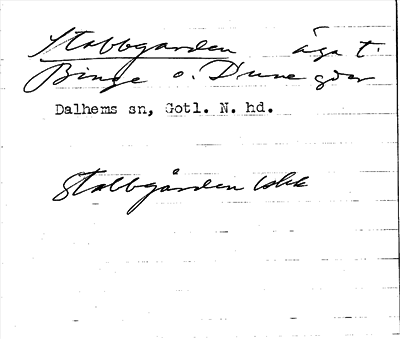 Stabbgården äga t.
Binge o. Dune gdar
Dalhems sn, Gotl. N. hd.
Stabbgården